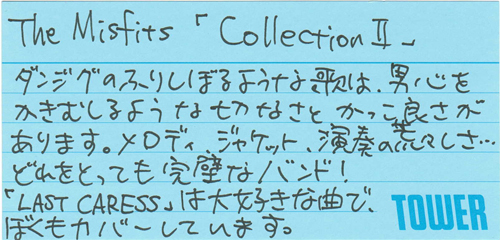 The Misfits 「Collection Ⅱ」
ダンジグのふりしぼるような歌は、男心を
かきむしるような切なさと かっこ良さが
あります。メロディ、ジャケット、演奏の荒々しさ…
どれをとっても完璧なバンド!
「LAST CARESS」は大好きな曲で、
ぼくもカバーしています。
TOWER